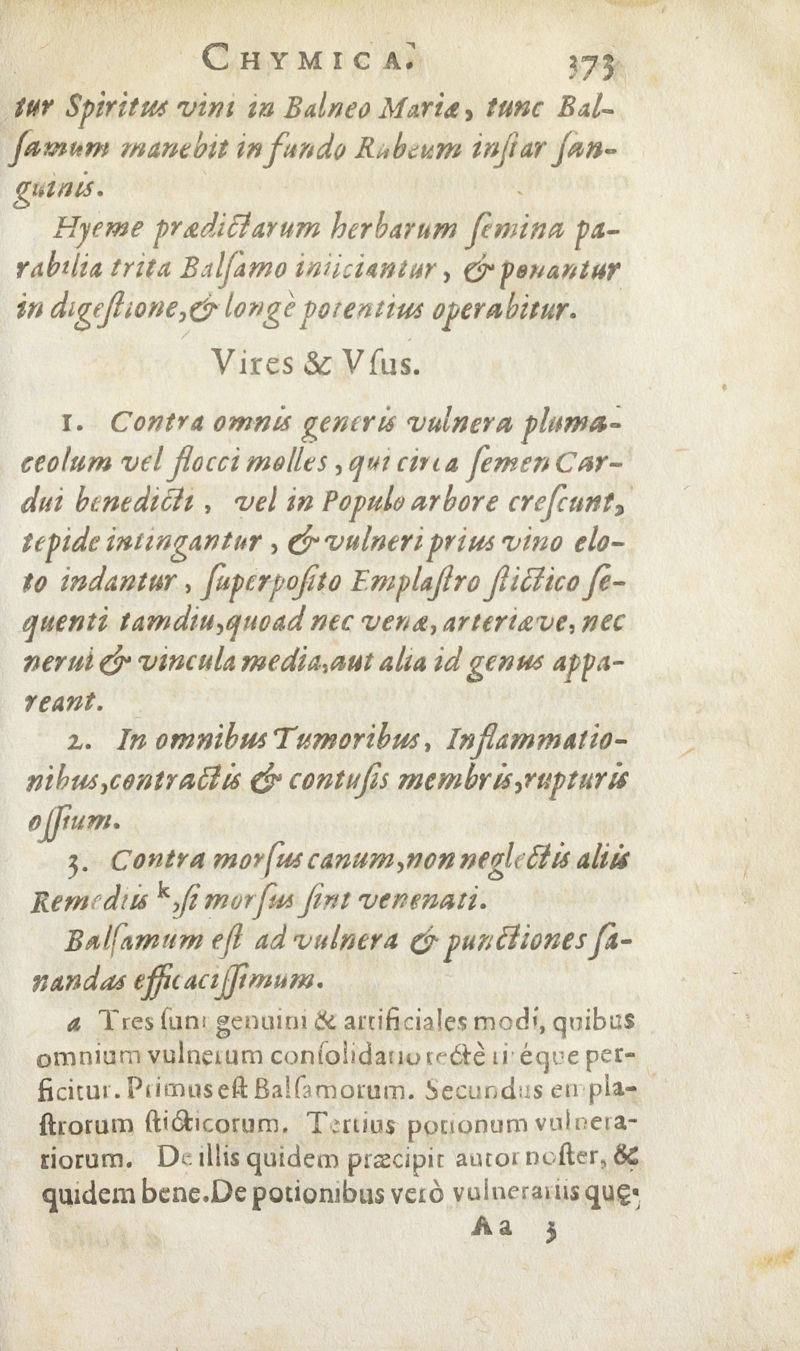 CHYMICA. 373
tur Spiritus vini in Balneo Mariæ, tunc Bal-
ſamum manebit in fundo Rubeum inſtar ſan-
guinis.
Hyeme prædictarum herbarum ſemina pa-
rabilia trita Balſamo iniiciantur, & ponantur
in digeſtione, & longè potentius operabitur.
Vires & Vſus.
1. Contra omnis generis vulnera pluma-
ceolum vel flocci molles, qui circa ſemen Car-
dui benedicti, vel in Populo arbore creſcunt,
tepide intingantur, & vulneri prius vino elo-
to indantur, ſuperpoſito Emplaſtro ſtictico ſe-
quenti tamdiu, quoad nec venæ, arteriæve, nec
nerui & vincula media, aut alia id genus appa-
reant.
2. In omnibus Tumoribus, Inflammatio-
nibus, contractis & contuſis membris, rupturis
oſſium.
3. Contra morſus canum, non neglectis aliis
Remediis k, ſi morſus ſint venenati.
Balſamum eſt ad vulnera & punctiones ſa-
nandas efficaciſſimum.
a Tres ſunt genuini & artificiales modi, quibus
omnium vulnerum conſolidatio rectè ritéque per-
ficitur. Primus eſt Balſamorum. Secundus empla-
ſtrorum ſticticorum. Tertius potionum vulnera-
riorum. De illis quidem præcipit autor noſter, &
quidem bene. De potionibus verò vulnerariis quę-
Aa 3